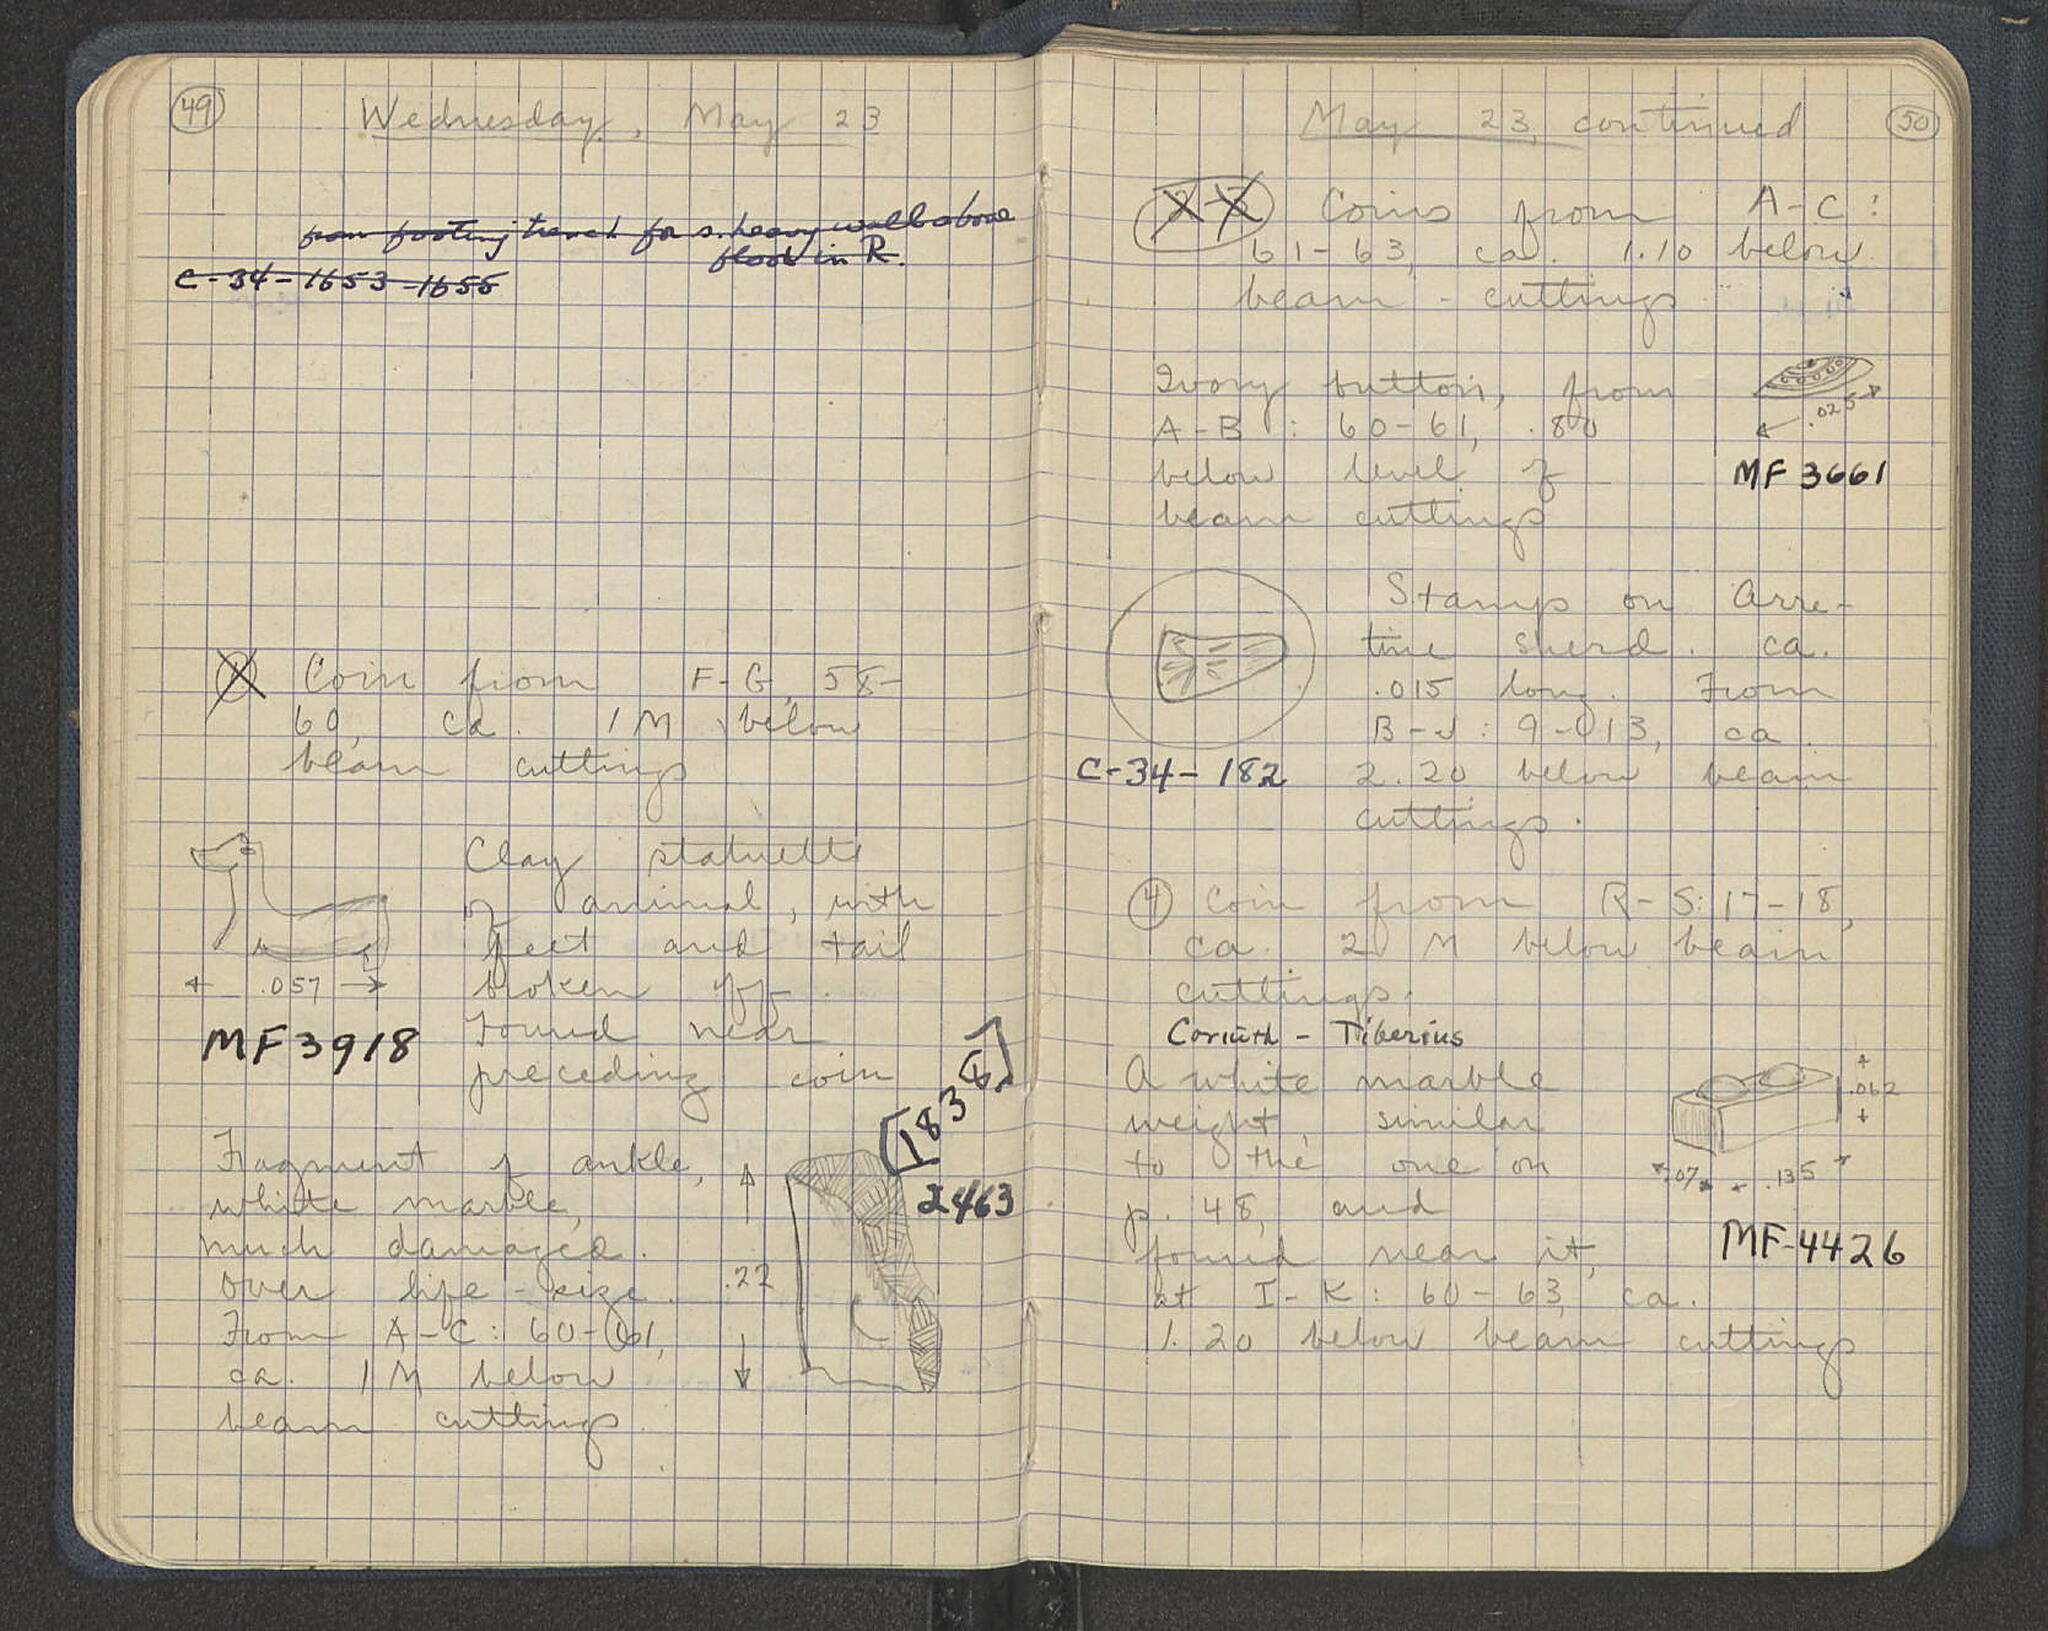 49
Wednesday, May 23
from footing trench for s. heavy wall above
floor in R.
C-34-1653-1655
1 Coin from F-G, 58-
60, ca. 1 M below
beam cuttings
Clay statuette
of animal, with
feet and tail
broken off.
.057
Found near
MF 3918
preceding coin
[1834]
2463
Fragment of ankle,
white marble,
much damaged.
Over life-size.
.22
From A-C: 60-61,
ca. 1 M below
beam cuttings.
May 23, continued
50
2-3 Coins from A-C:
61-63, ca. 1.10 below
beam-cuttings
Ivory button, from
.025
A-B : 60-61, .80
below level of
MF 3661
beam cuttings
Stamp on Arre-
tine sherd. ca.
.015 long. From
B-J: 9-13, ca.
C-34-182
2.20 below beam
cuttings.
4 Coin from R-S: 17-18,
ca. 2 M below beam
cuttings.
Corinth - Tiberius
A white marble
.062
weight, similar
to the one on
.07 .135
p. 48, and
found near it,
MF-4426
at I-K: 60-63, ca.
1.20 below beam cuttings